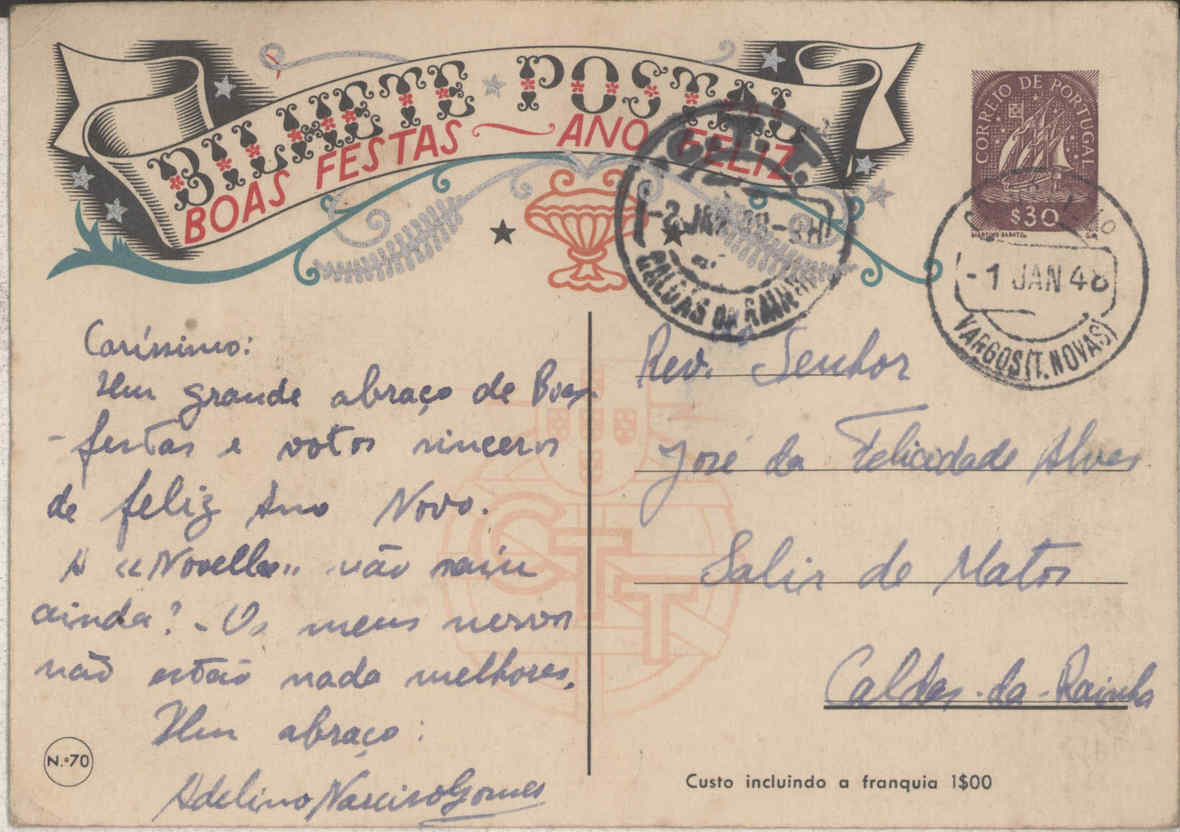 BILHETE POSTAL
BOAS FESTAS ~ ANO FELIZ.
CORREIO DE PORTUGAL
$30
MARTINS BARATA
-1 JAN 48
VARGOS (T. NOVAS)
C.T.T.
-2 JAN 48-9H
CALDAS DA RAINHA
Caríssimo:
Um grande abraço de Boas-
-festas e votos sinceros
de feliz Ano Novo.
A «Novella» não saíu
ainda? - Os meus nervos
não estão nada melhores.
Um abraço:
Adelino Narciso Gomes
Rev. Senhor
José da Felicidade Alves
Salir de Matos
Caldas-da-Rainha
CTT
N.º 70
Custo incluindo a franquia 1$00